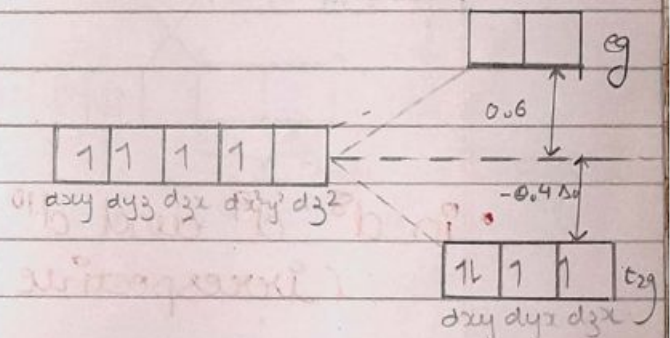 eg
0.6
1 1 1 1
dxy dyz dzx dx²y² dz²
-0.4 Δo
1L 1 1 t2g
dxy dyx dzx